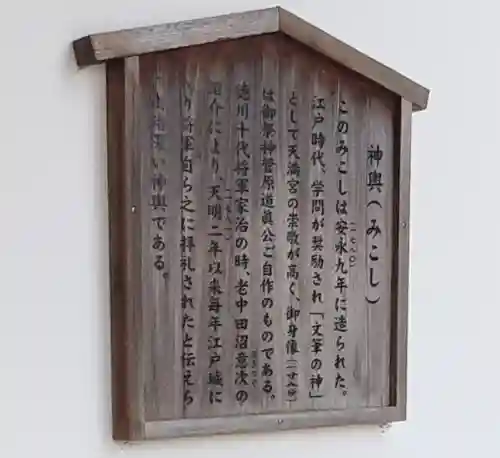 神輿(みこし)
このみこしは安永九年に造られた。
(一七八〇)
江戸時代、学問が奨励され「文筆の神」
として天満宮の崇敬が高く、御身像
は御祭神菅原道真公ご自作のものである。
徳川十代将軍家治の時、老中田沼意次の
おきつぐ
紹介により、天明二年以来毎年江戸城に
り将軍自ら之に拝礼されたと伝えら
い神輿である。